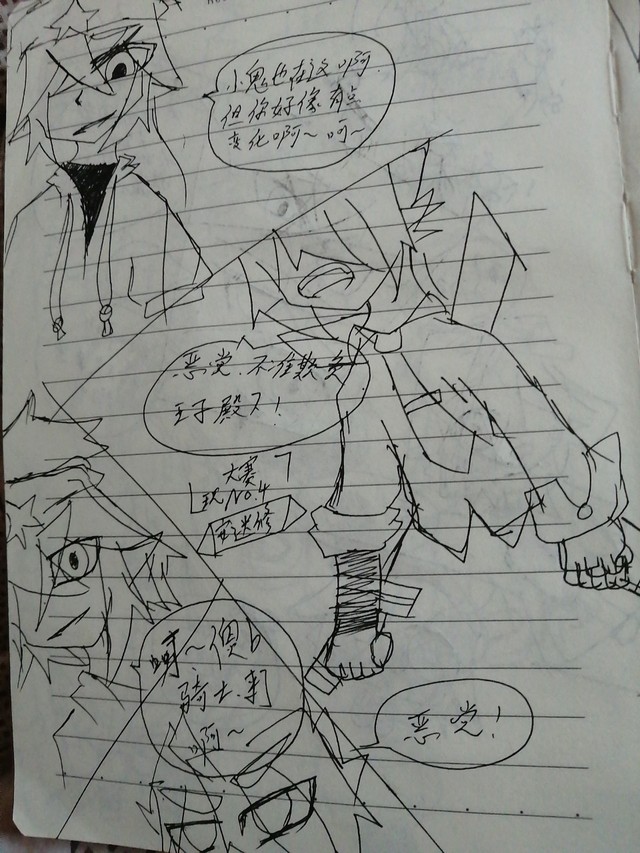 小鬼也在这啊
但你好像有点
变化啊~呵~
恶党.不准欺负
王子殿下!
大赛
No.4
骑士.
啊~
恶党!